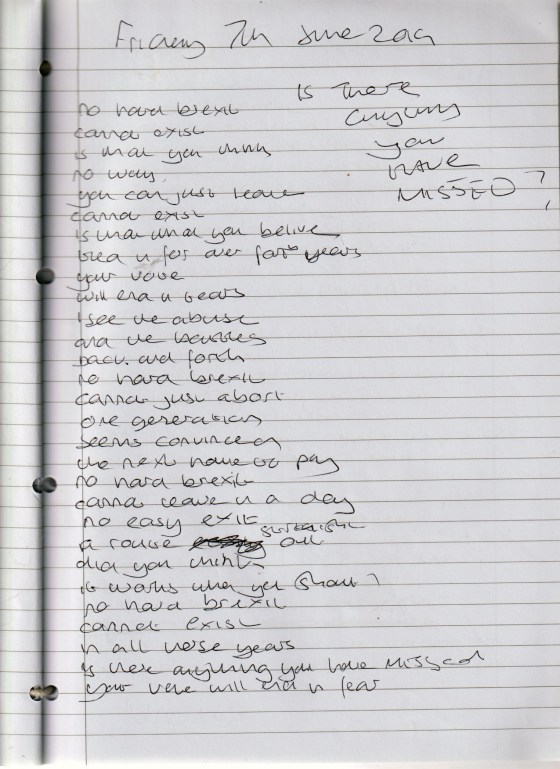 Friday 7th June 2019
Is There
anything
you
HAVE
MISSED ?
no hard brexit
cannot exist
is that you think
no way
you can just leave
cannot exist
is that what you belive
tied in for over forty years
your vote
will end in tears
i see the abuse
and the
back and forth
no hard brexit
cannot just abort
one generation
seems convinced
the next have to pay
no hard brexit
cannot leave in a day
no easy exit
a rouse out
did you think
it works when you shout ?
no hard brexit
cannot exist
in all these years
is there anything you have missed
your vote will end in fear